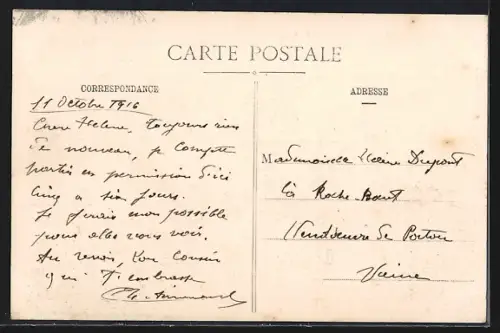 CARTE POSTALE
CORRESPONDANCE
11 Octobre 1916
Chere Helene, toujours rien
de nouveau, je compte
partir en permission d'ici
cinq a six jours.
Je ferais mon possible
pour aller vous voir.
Au revoir, ton cousin
qui t'embrasse
ADRESSE
Mademoiselle Helene Dupont
La Roche
de Poitou
Vienne